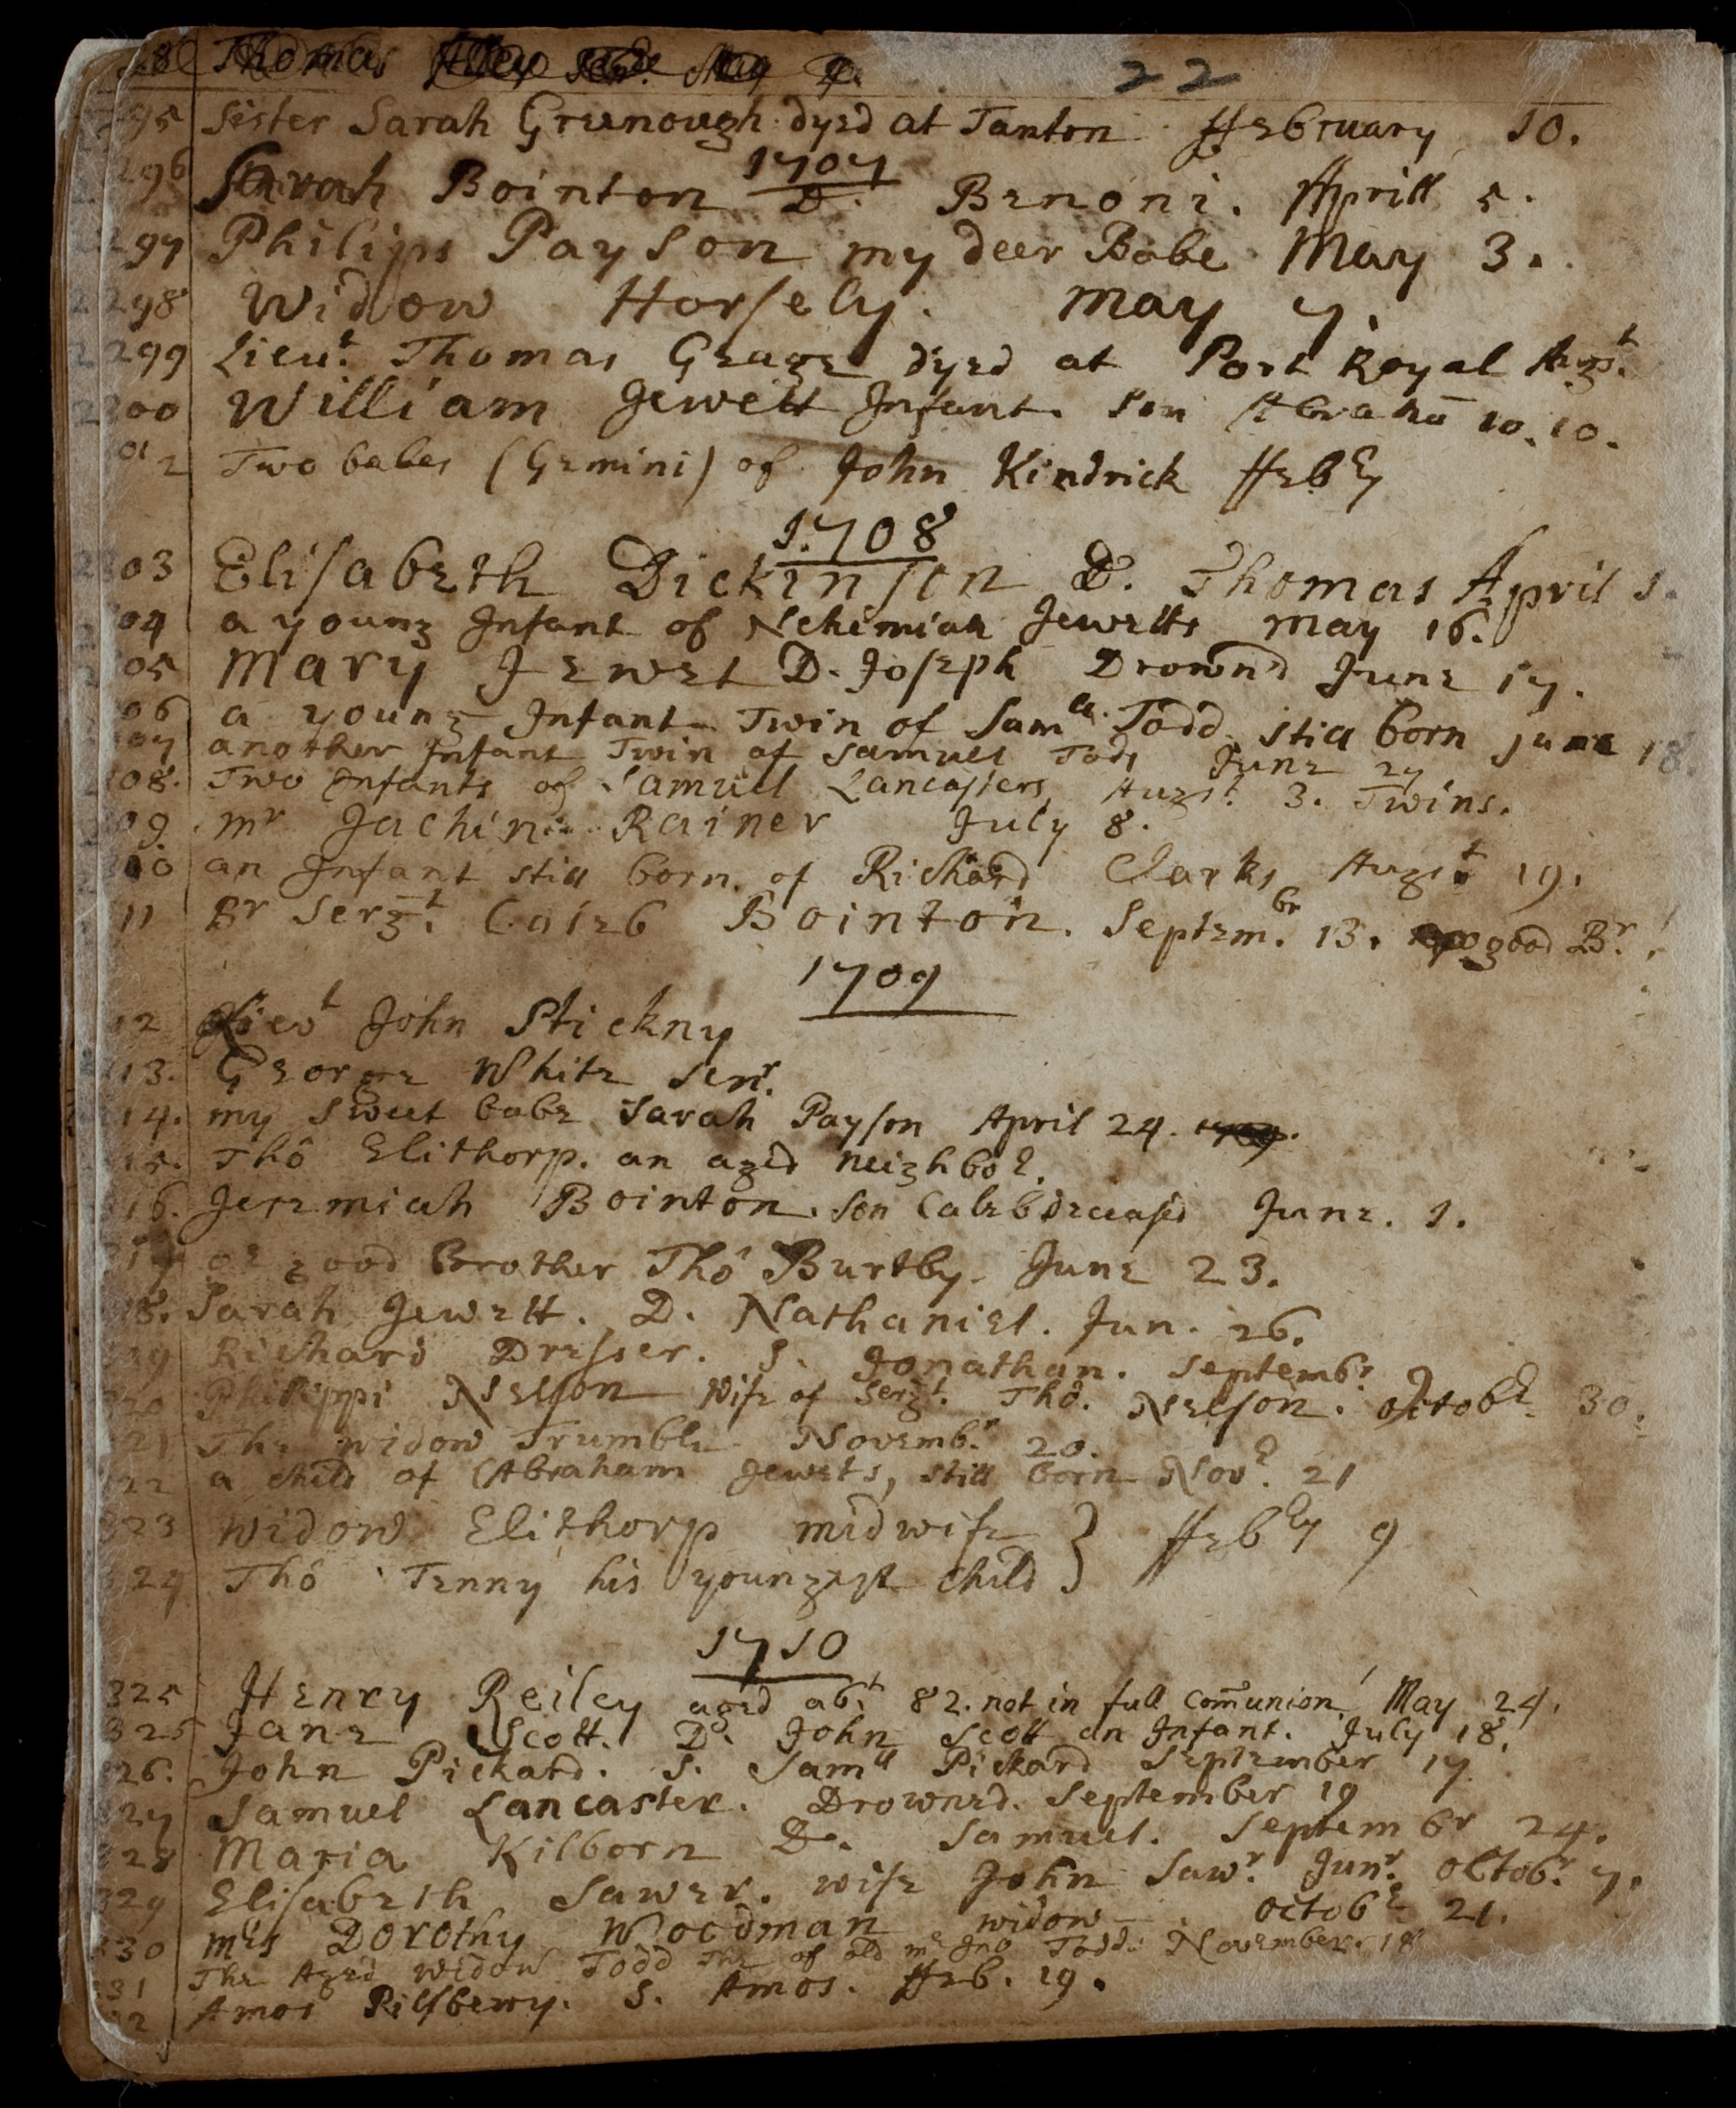 Thomas
22
95 Sister Sarah Greenough dyed at Tanton ffebruary 10.
1707
296 Sarah Bointon D. Benoni. Aprill 5.
297 Philips Payson my deer Babe May 3.
298 Widow Horsely. May 7.
299 Lieut. Thomas Geage dyed at Port Royal Augst.
300 William Jewett Infant. Son Abrahā 10. 10.
01 2 Two babes (Gemini) of John Kindrick ffebry
1708
03 Elisabeth Dickinson D. Thomas April 1.
04 a young Infant of Nehemiah Jewetts May 16.
05 Mary Jewet D. Joseph Drownd June 17.
06 a young Infant Twin of Samll. Todd still born june 18.
07 another Infant Twin of Samuel Tods June 27.
08. Two Infants of Samuel Lancasters August 3. Twins.
09. mr Jachin Rainer July 8.
10 an Infant still born of Richard Clarks Augst 19.
11 Br Sergt. Caleb Bointon. Septembr. 13. good Br.!
1709
12 Lievt John Stickny
13. George White Senr.
14. my sweet babe Sarah Payson April 24. 1709.
15. Thō Elithorp. an aged neighbor.
16. Jeremiah Bointon. son Caleb deceased June. 1.
317 or good Brother Thō Burtby. June 23.
18. Sarah Jewett. D. Nathaniel. Jun. 26.
319 Richard Dresser. S. Jonathan. Septembr
320 Philippi Nelson Wife of Sergt. Thō. Nelson. Octobr. 30.
21 The widow Trumble Novembr. 20.
22 a child of Abraham Jewets, still born Novr. 21
323 Widow Elithorp midwife } ffebry 9
324 Thō Tenny his youngest child
1710
325 Henry Reiley aged abt. 82. not in full Com̄union! May 24.
325 Jane Scott. D. John Scott an Infant. July 18.
326. John Pickard. S. Samll Pickard September 17
327 Samuel Lancaster. Drowned. September 19
328 Maria Kilborn D. Samuel. Septembr 24.
329 Elisabeth Sawer. wife John Sawr. Junr. Octobr. 7.
330 mrs Dorothy Woodman widow Octobr 21.
331 The Aged Widow Todd The of old mr Jno Todd. November. 18
32 Amos Pilsberry. S. Amos. ffeb. 19.